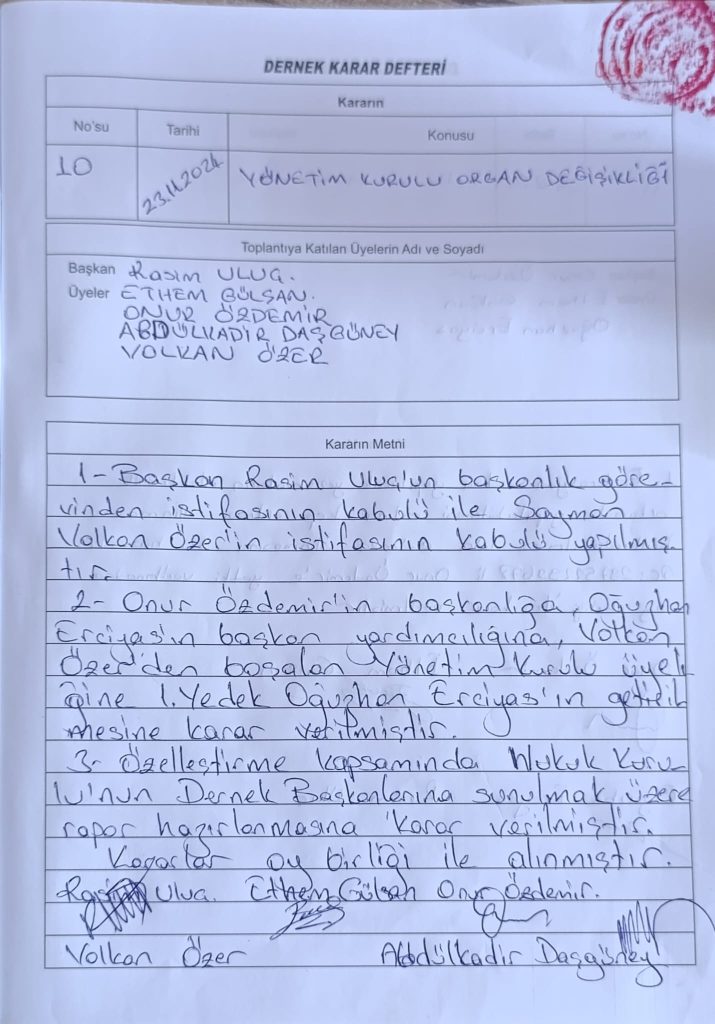 DERNEK KARAR DEFTERİ
Kararın
No'su Tarihi Konusu
10 23.11.2024 YÖNETİM KURULU ORGAN DEĞİŞİKLİĞİ
Toplantıya Katılan Üyelerin Adı ve Soyadı
Başkan Rasim ULUG.
Üyeler ETHEM GÜLŞAN.
ONUR ÖZDEMİR
ABDÜLKADİR DAŞGÜNEY
VOLKAN ÖZER
Kararın Metni
1- Başkan Rasim Ulug'un başkanlık göre-
vinden istifasının kabulü ile Sayman
Volkan Özer'in istifasının kabulü yapılmış-
tır.
2- Onur Özdemir'in başkanlığa, Oğuzhan
Erciyas'ın başkan yardımcılığına, Volkan
Özer'den boşalan Yönetim Kurulu üyeli
ğine 1. Yedek Oğuzhan Erciyas'ın getiril
mesine karar verilmiştir.
3- Özelleştirme kapsamında Hukuk Kuru-
lu'nun Dernek Başkanlarına sunulmak üzere
rapor hazırlanmasına karar verilmiştir.
Kararlar oy birliği ile alınmıştır.
Rasim Ulug. Ethem Gülşah Onur Özdemir.
Volkan Özer Abdülkadir Daşgüney